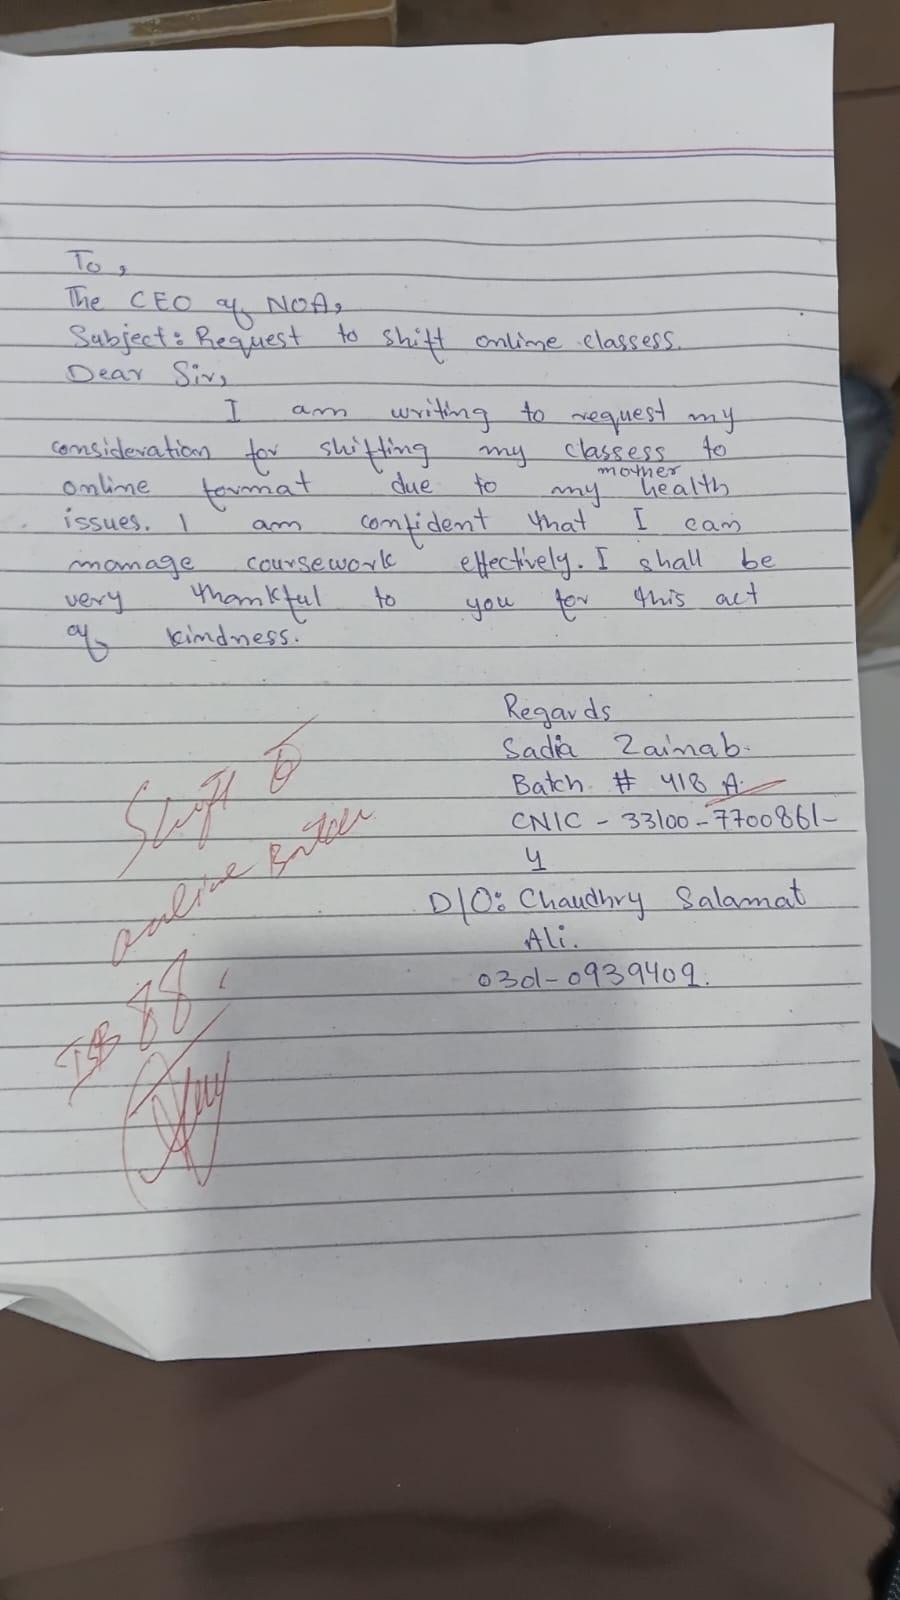 To,
The CEO of NOA,
Subject: Request to shift online classess.
Dear Sir,
I am writing to request my
consideration for shifting my classess to
online format due to my mother health
issues. I am confident that I can
manage coursework effectively. I shall be
very thankful to you for this act
of kindness.
Regards
Sadia Zainab.
Batch # 418 A.
CNIC - 33100-7700861-
4
D/O: Chaudhry Salamat
Ali.
0301-0939409.
Shift to
online Batch
88.